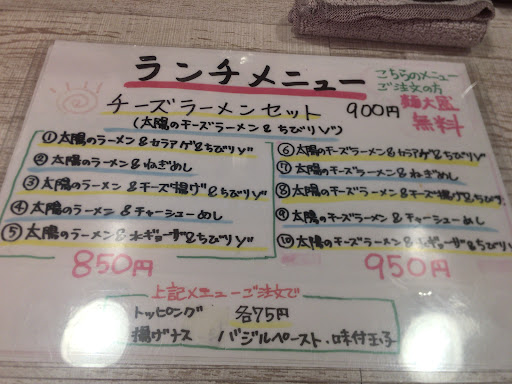 ランチメニュー
こちらのメニュー
ご注文の方
麺大盛
無料
チーズラーメンセット 900円
(太陽のチーズラーメン&ちびリゾ)
①太陽のラーメン&カラアゲ&ちびリゾ
②太陽のラーメン&ねぎめし
③太陽のラーメン&チーズ揚げ&ちびリゾ
④太陽のラーメン&チャーシューめし
⑤太陽のラーメン&水ギョーザ&ちびリゾ
850円
⑥太陽のチーズラーメン&カラアゲ&ちびリゾ
⑦太陽のチーズラーメン&ねぎめし
⑧太陽のチーズラーメン&チーズ揚げ&ちびリゾ
⑨太陽のチーズラーメン&チャーシューめし
⑩太陽のチーズラーメン&水ギョーザ&ちびリゾ
950円
上記メニューご注文で
トッピング 各75円
揚げナス バジルペースト・味付玉子